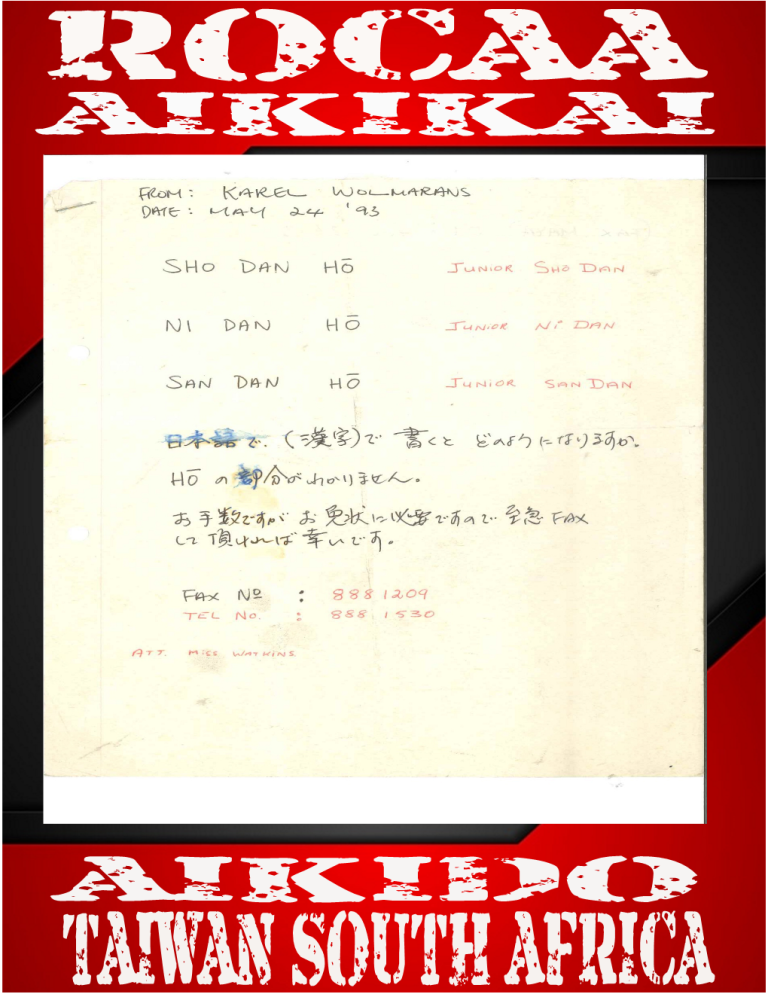 ROCAA
AIKIKAI
FROM: KAREL WOLMARANS
DATE: MAY 24 '93
SHO DAN HŌ JUNIOR SHO DAN
NI DAN HŌ JUNIOR NI DAN
SAN DAN HŌ JUNIOR SAN DAN
日本語で、(漢字)で 書くと どのようになりますか。
HŌ の部分がわかりません。
お手数ですが お免状に必要ですので 至急 FAX
して頂ければ幸いです。
FAX Nº : 888 1209
TEL No. : 888 1530
ATT. MISS WATKINS
AIKIDO
TAIWAN SOUTH AFRICA